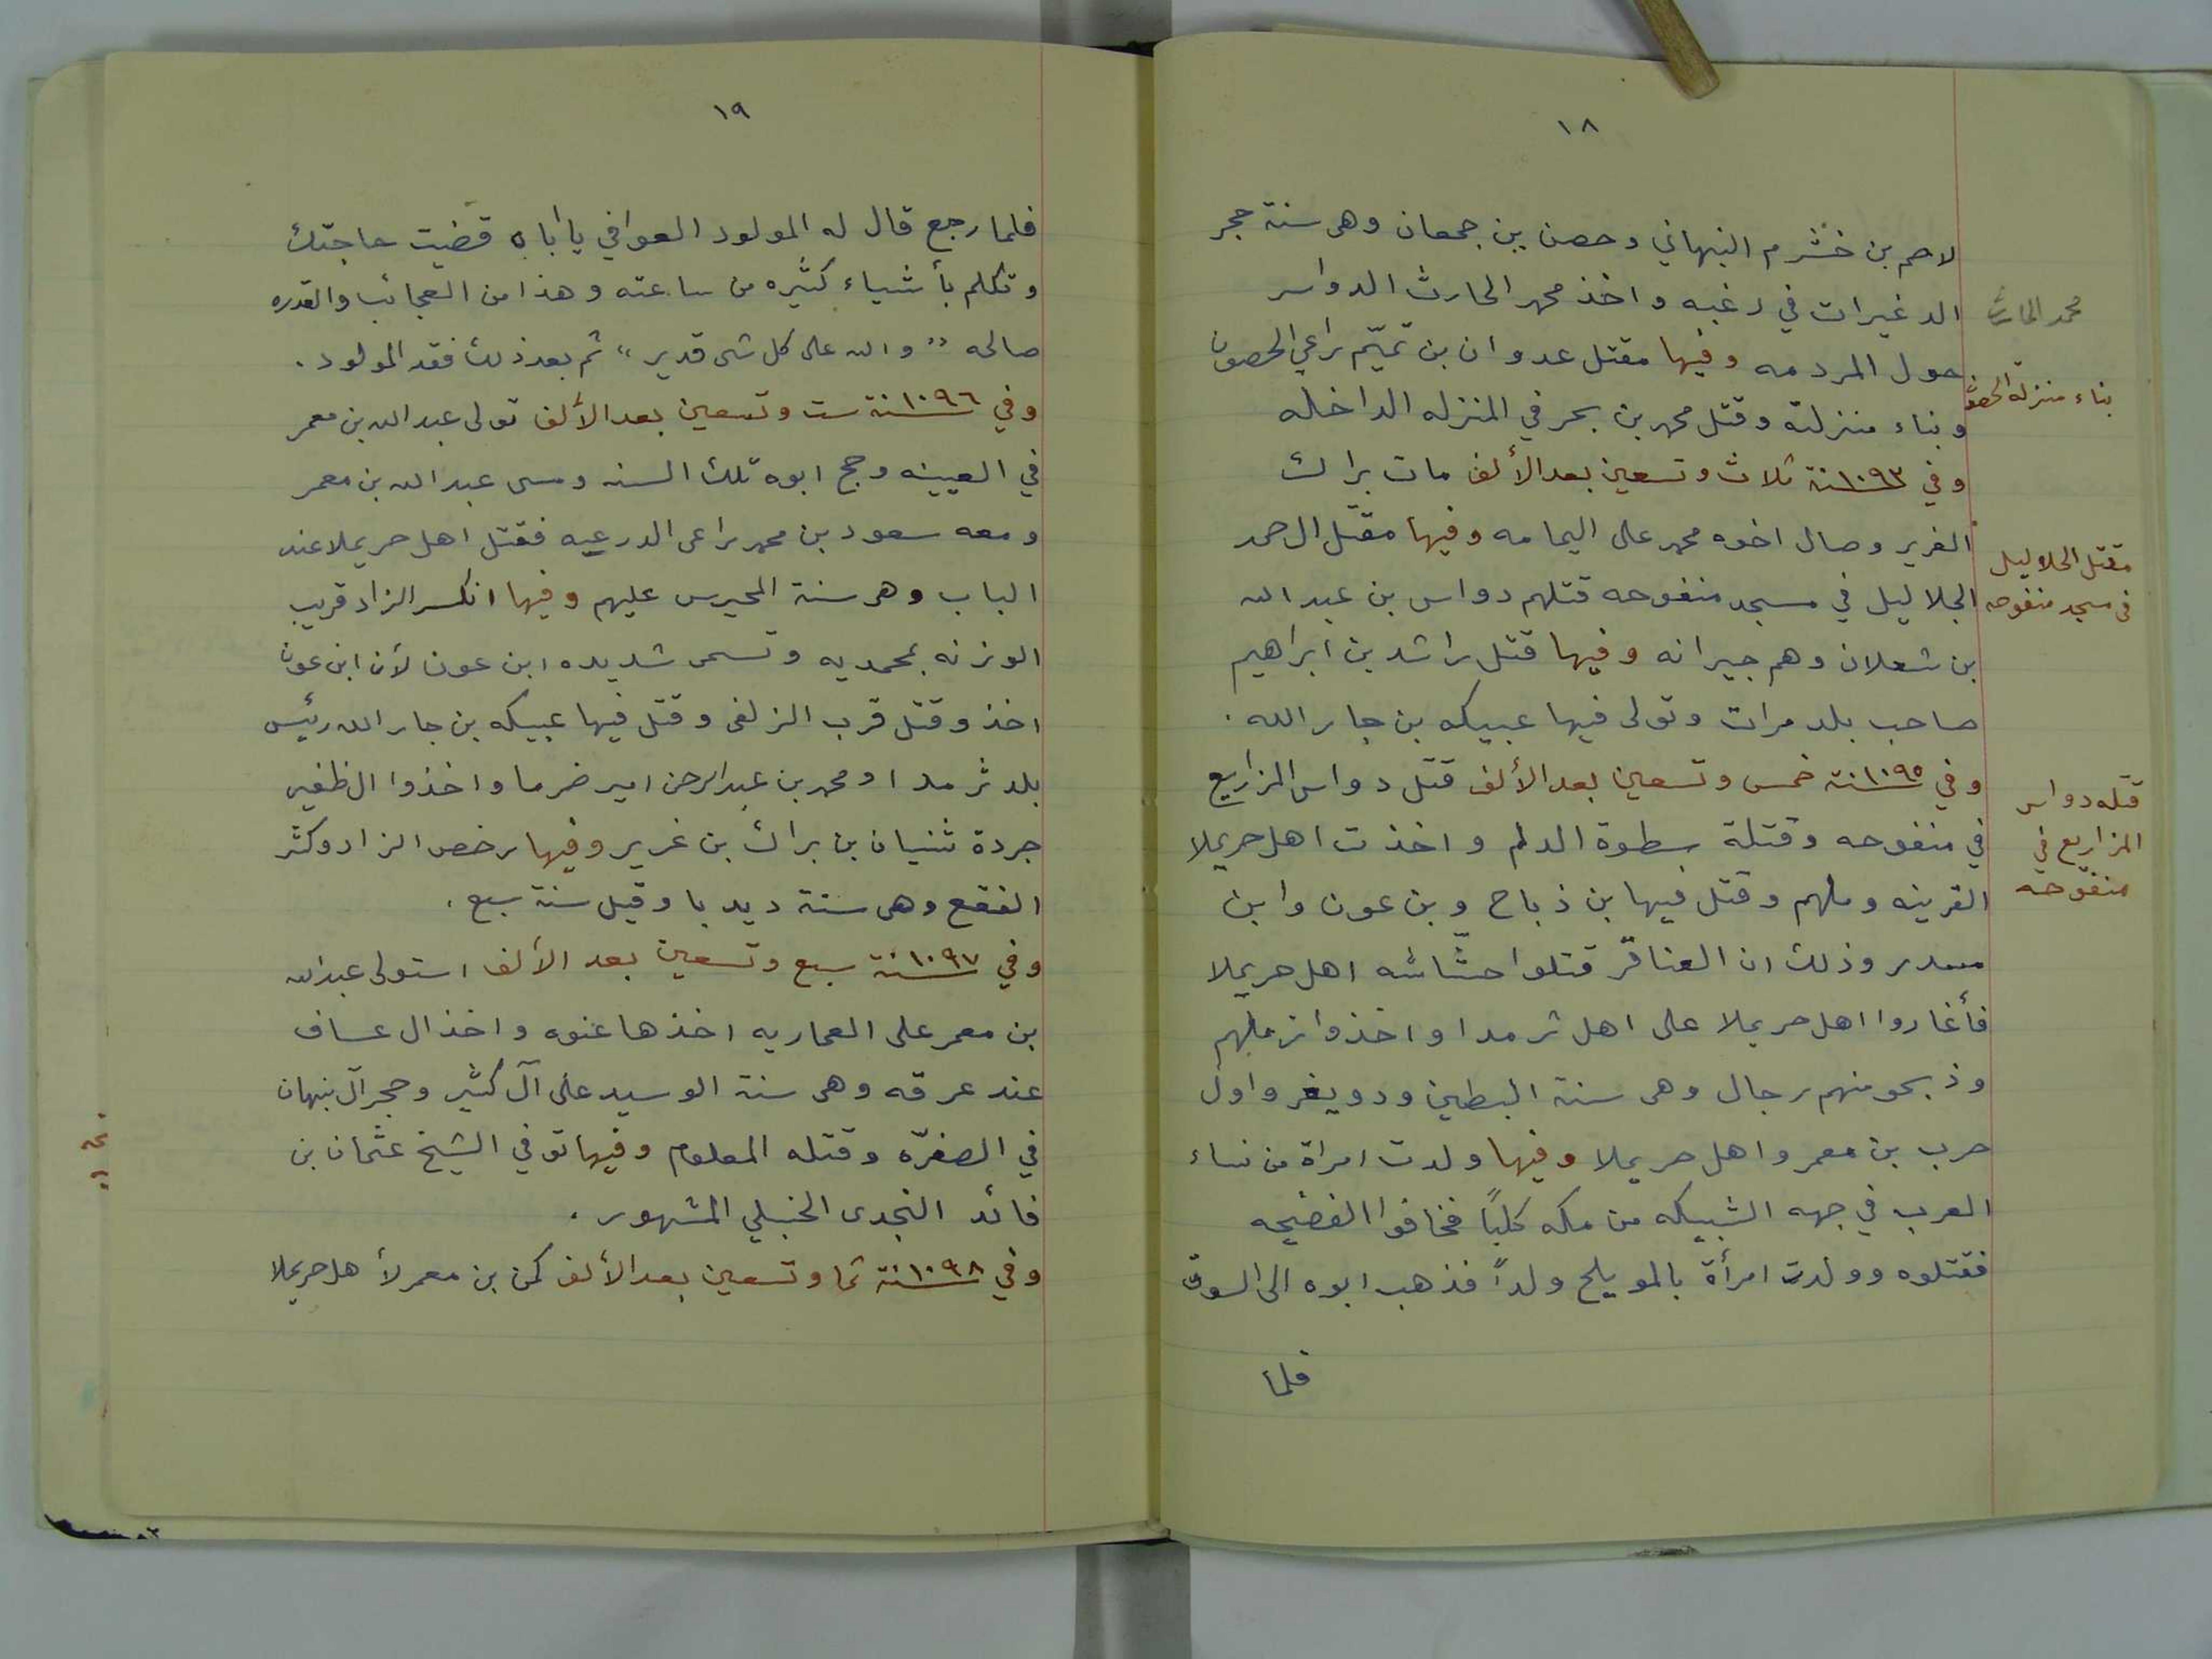 ١٨
لاحم بن خشرم النبهاني وحصن بن جمعان وهى سنة حجر
الدغيرات في رغبه واخذ محمد الحارث الدواسر
حول المردمه وفيها مقتل عدوان بن تميّم راعي الحصون
وبناء منزلته وقتل محمد بن بحر في المنزله الداخله
وفي ١٠٩٣سنة ثلاث وتسعين بعد الألف مات براك
الغرير وصال اخوه محمد على اليمامه وفيها مقتل ال حمد
الجلاليل في مسجد منفوحه قتلهم دواس بن عبدالله
بن شعلان وهم جيرانه وفيها قتل راشد بن ابراهيم
صاحب بلد مرات وتولى فيها عبيكه بن جار الله .
وفي ١٠٩٥سنة خمس وتسعين بعد الألف قتل دواس المزاريع
في منفوحه وقتلة سطوة الدلم واخذت اهل حريملا
القرينه وملهم وقتل فيها بن ذباح وبن عون وابن
مسدر وذلك ان العناقر قتلوا حشّاشه اهل حريملا
فأغاروا اهل حريملا على اهل ثرمدا واخذوا زملهم
وذبحو منهم رجال وهى سنة البطين ودويغر واول
حرب بن معمر واهل حريملا وفيها ولدت امراة من نساء
العرب في جهه الشبيكه من مكه كلباً فخافوا الفضيحه
فقتلوه وولدت امرأة بالمويلح ولداً فذهب ابوه الى السوق
فلما
محمد الحارث
بناء منزلة الحصون
مقتل الجلاليل
في مسجد منفوحه
قتله دواس
المزاريع في
منفوحه
١٩
فلما رجع قال له المولود العوافي يا أباه قضيت حاجتك
وتكلم بأشياء كثيره من ساعته وهذا من العجائب والقدره
صالحه "والله على كل شى قدير" ثم بعد ذلك فقد المولود .
وفي ١٠٩٦سنة ست وتسعين بعد الألف تولى عبدالله بن معمر
في العيينه وحج ابوه تلك السنه ومسى عبدالله بن معمر
ومعه سعود بن محمد راعى الدرعيه فقتل اهل حريملا عند
الباب وهى سنة المحيرس عليهم وفيها انكسر الزاد قريب
الوزنه بمحمديه وتسمى شديده ابن عون لأن ابن عون
اخذ وقتل قرب الزلفى وقتل فيها عبيكه بن جار الله رئيس
بلد ثرمدا ومحمد بن عبدالرحن امير ضرما واخذوا ال ظفير
جردة ثنيان بن براك بن غرير وفيها رخص الزاد وكثر
الفقع وهى سنة ديدبا وقيل سنة سبع .
وفي ١٠٩٧سنة سبع وتسعين بعد الألف استولى عبدالله
بن معمر على العماريه اخذها عنوه واخذ ال عساف
عند عرقه وهى سنة الوسيد على آل كثير وحجر آل نبهان
في الصفرّه وقتله المعلوم وفيها توفي الشيخ عثمان بن
قائد النجدى الحنبلي المشهور .
وفي ١٠٩٨سنة ثما وتسعين بعد الألف كمن بن معمر لأهل حريملا